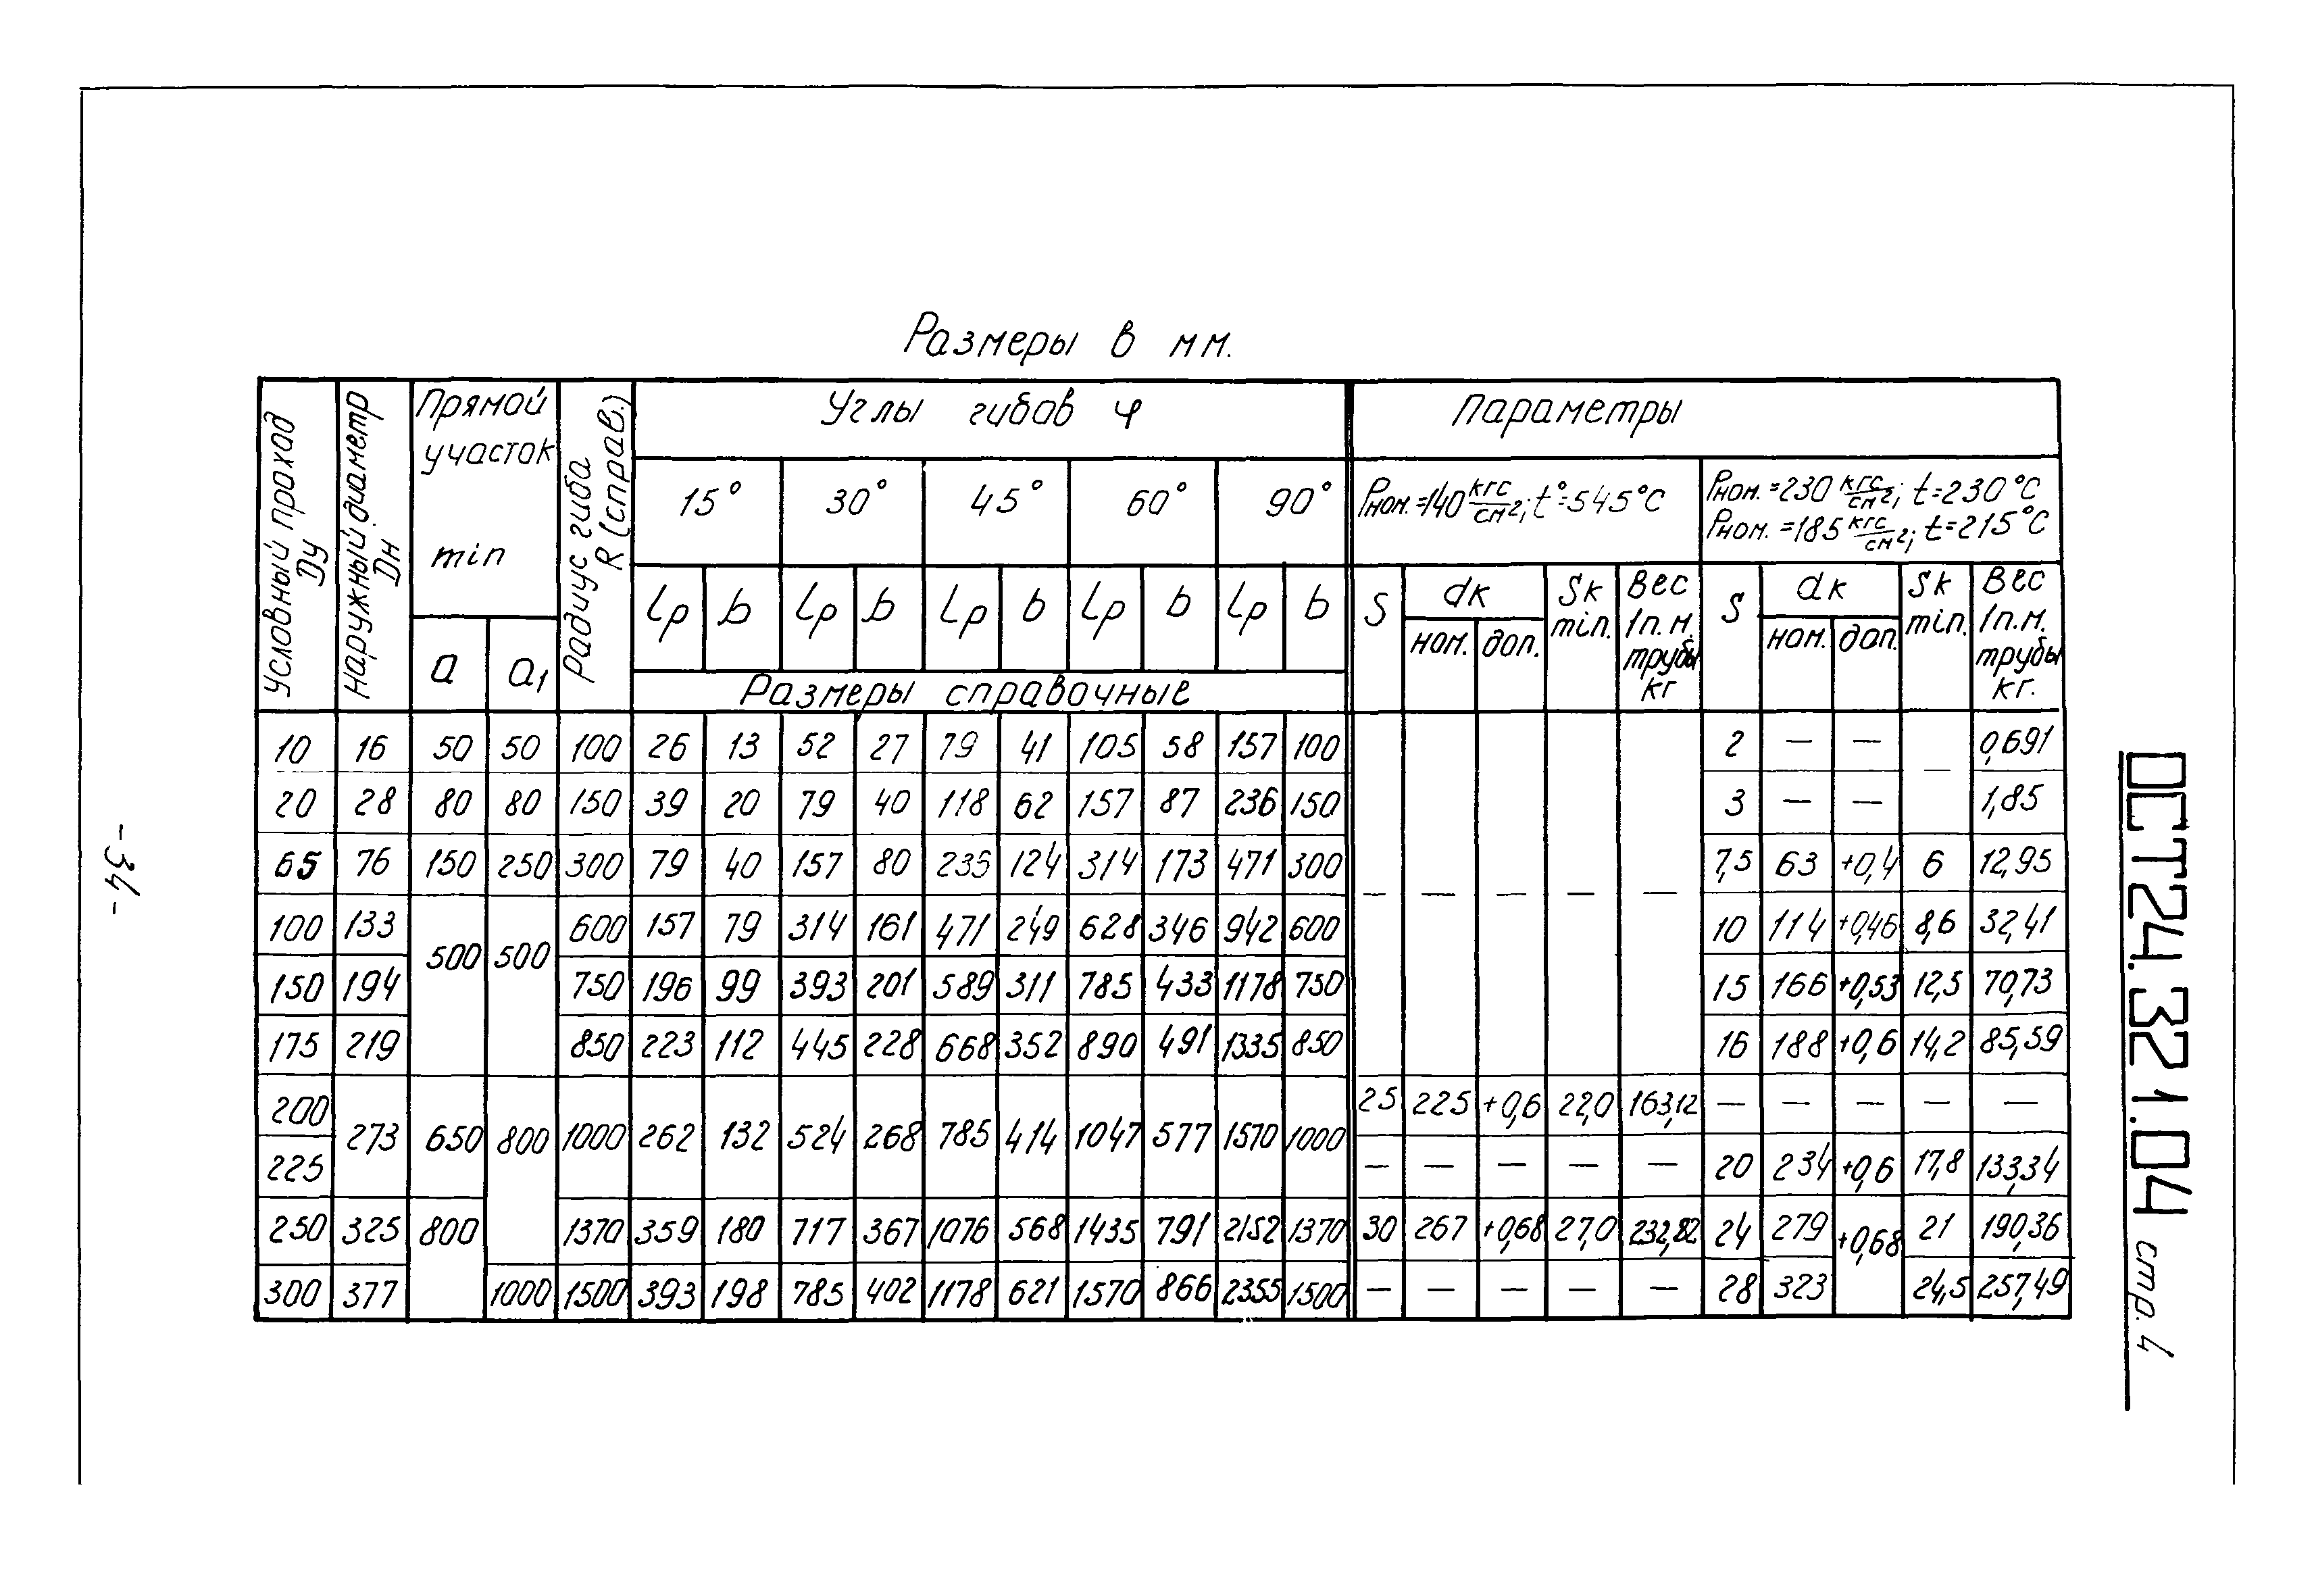 Размеры в мм.
Условный проход Dу
Наружный диаметр Dн
Прямой участок min
a a₁
Радиус гиба R (справ.)
Углы гибов φ
15° 30° 45° 60° 90°
Lр b Lр b Lр b Lр b Lр b
Размеры справочные
Параметры
Рном.=140 кгс/см²; t°=545°C
Рном.=230 кгс/см²; t=230°C
Рном.=185 кгс/см²; t=215°C
S dк Sк min. Вес 1п.м. трубы кг
ном. доп.
S dк Sк min. Вес 1п.м. трубы кг.
ном. доп.
10 16 50 50 100 26 13 52 27 79 41 105 58 157 100 2 — — — 0,691
20 28 80 80 150 39 20 79 40 118 62 157 87 236 150 3 — — 1,85
65 76 150 250 300 79 40 157 80 235 124 314 173 471 300 — — — — — 7,5 63 +0,4 6 12,95
100 133 500 500 600 157 79 314 161 471 249 628 346 942 600 10 114 +0,46 8,6 32,41
150 194 750 196 99 393 201 589 311 785 433 1178 750 15 166 +0,53 12,5 70,73
175 219 850 223 112 445 228 668 352 890 491 1335 850 16 188 +0,6 14,2 85,59
200 273 650 800 1000 262 132 524 268 785 414 1047 577 1570 1000 25 225 +0,6 22,0 163,12 — — — — —
225 — — — — — 20 234 +0,6 17,8 133,34
250 325 800 1370 359 180 717 367 1076 568 1435 791 2152 1370 30 267 +0,68 27,0 232,82 24 279 +0,68 21 190,36
300 377 1000 1500 393 198 785 402 1178 621 1570 866 2355 1500 — — — — — 28 323 24,5 257,49
ОСТ24.321.04 стр. 4
-34-